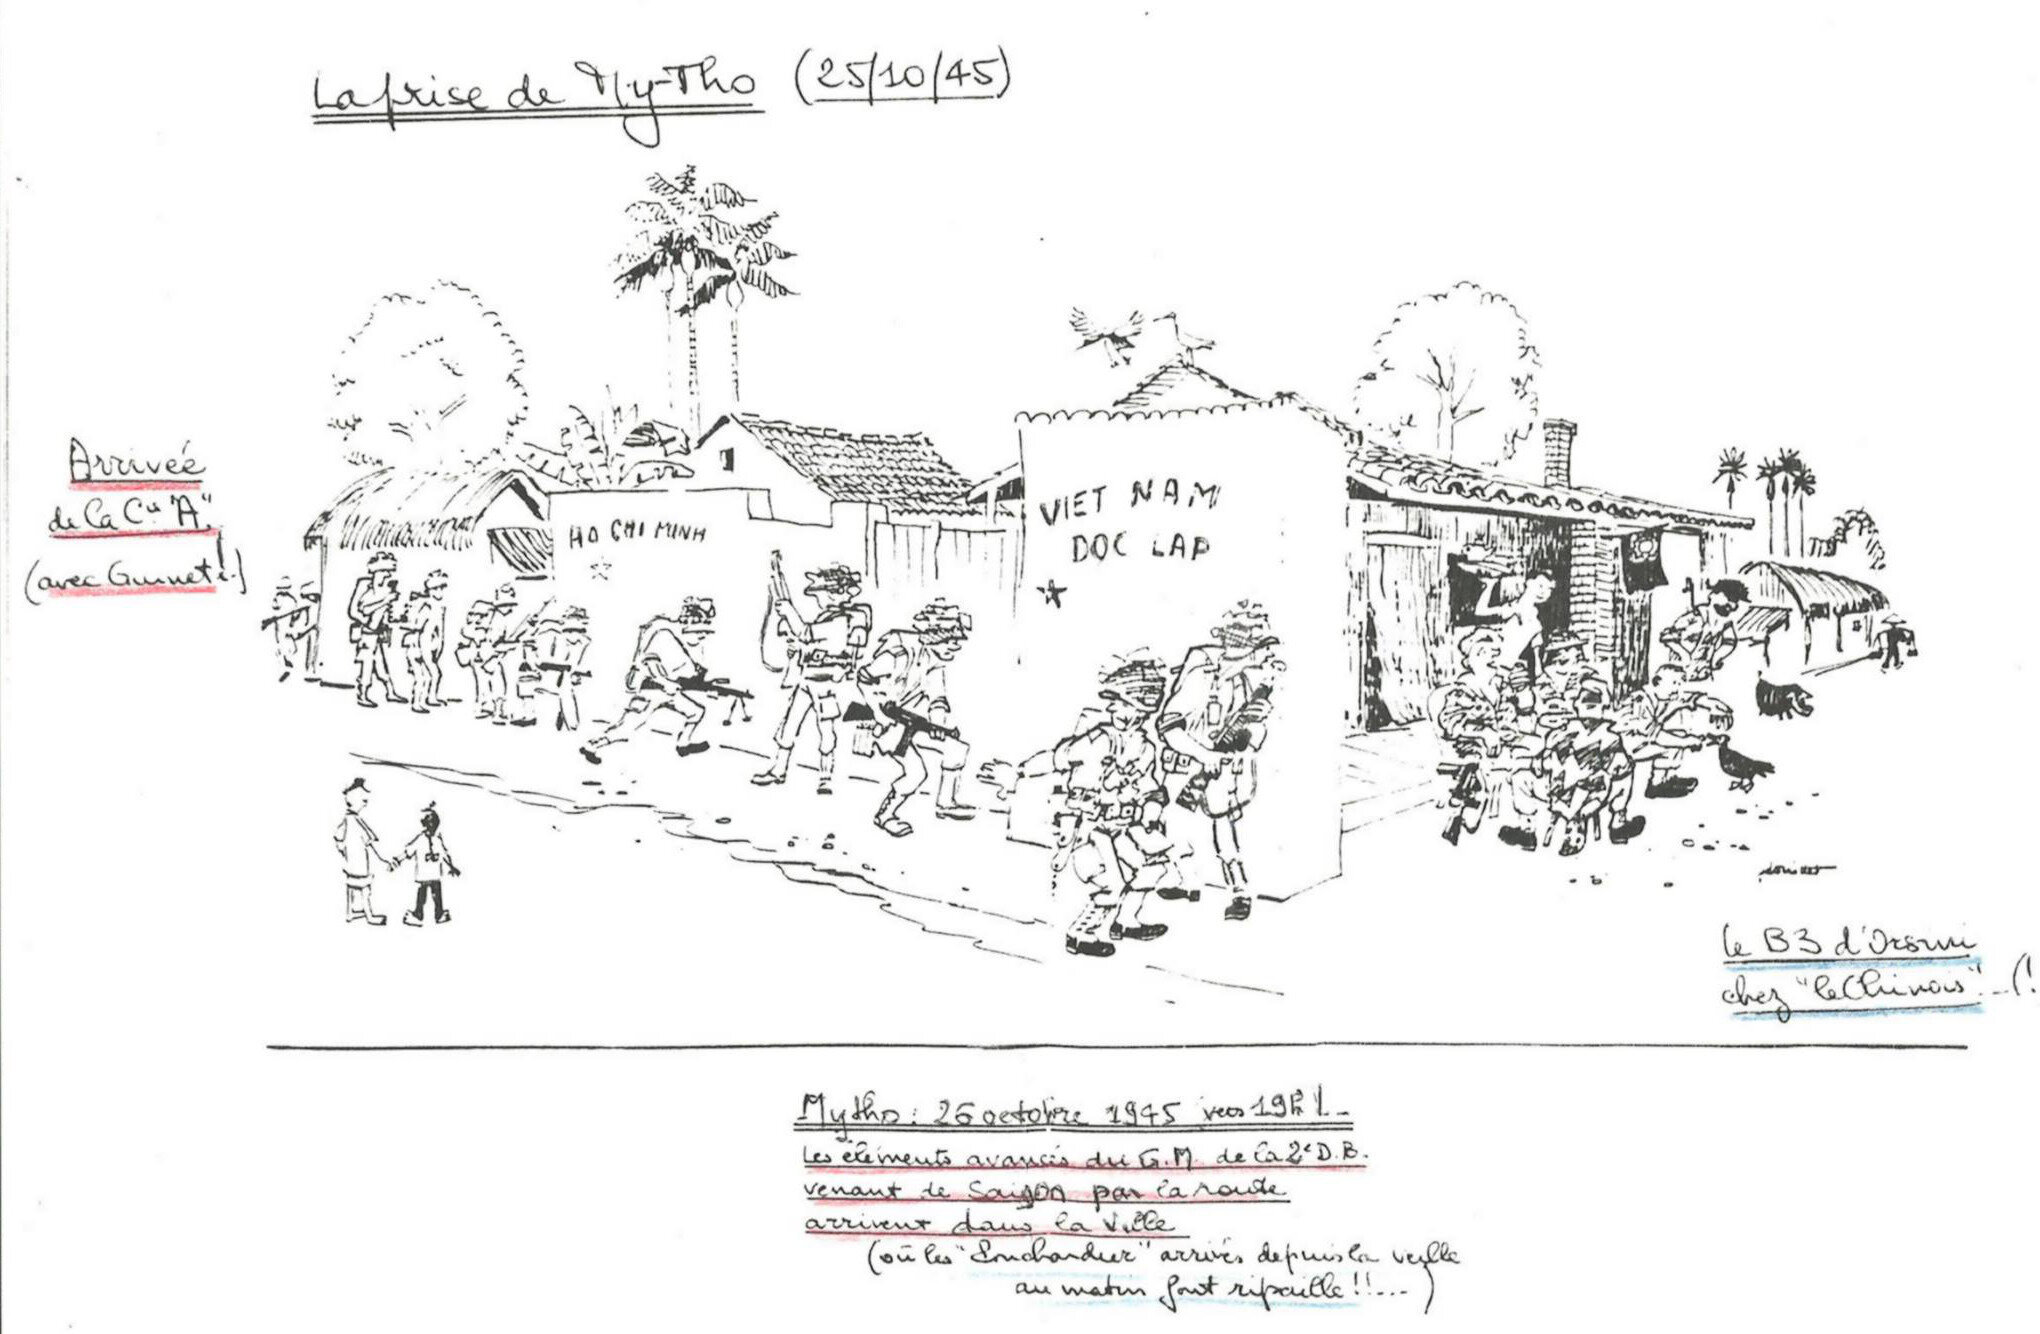 La prise de My-Tho (25/10/45)
Arrivée
de la Cie "A"
(avec Guinet!.)
HO CHI MINH
VIET NAM
DOC LAP
le B3 d'Orsini
chez "le Chinois"...(!
Mytho: 26 octobre 1945 vers 19h!..
Les éléments avancés du G.M. de la 2e D.B.
venant de Saigon par la route
arrivent dans la Ville
(où les "Ponchardier" arrivés depuis la veille
au matin font ripaille!!....)